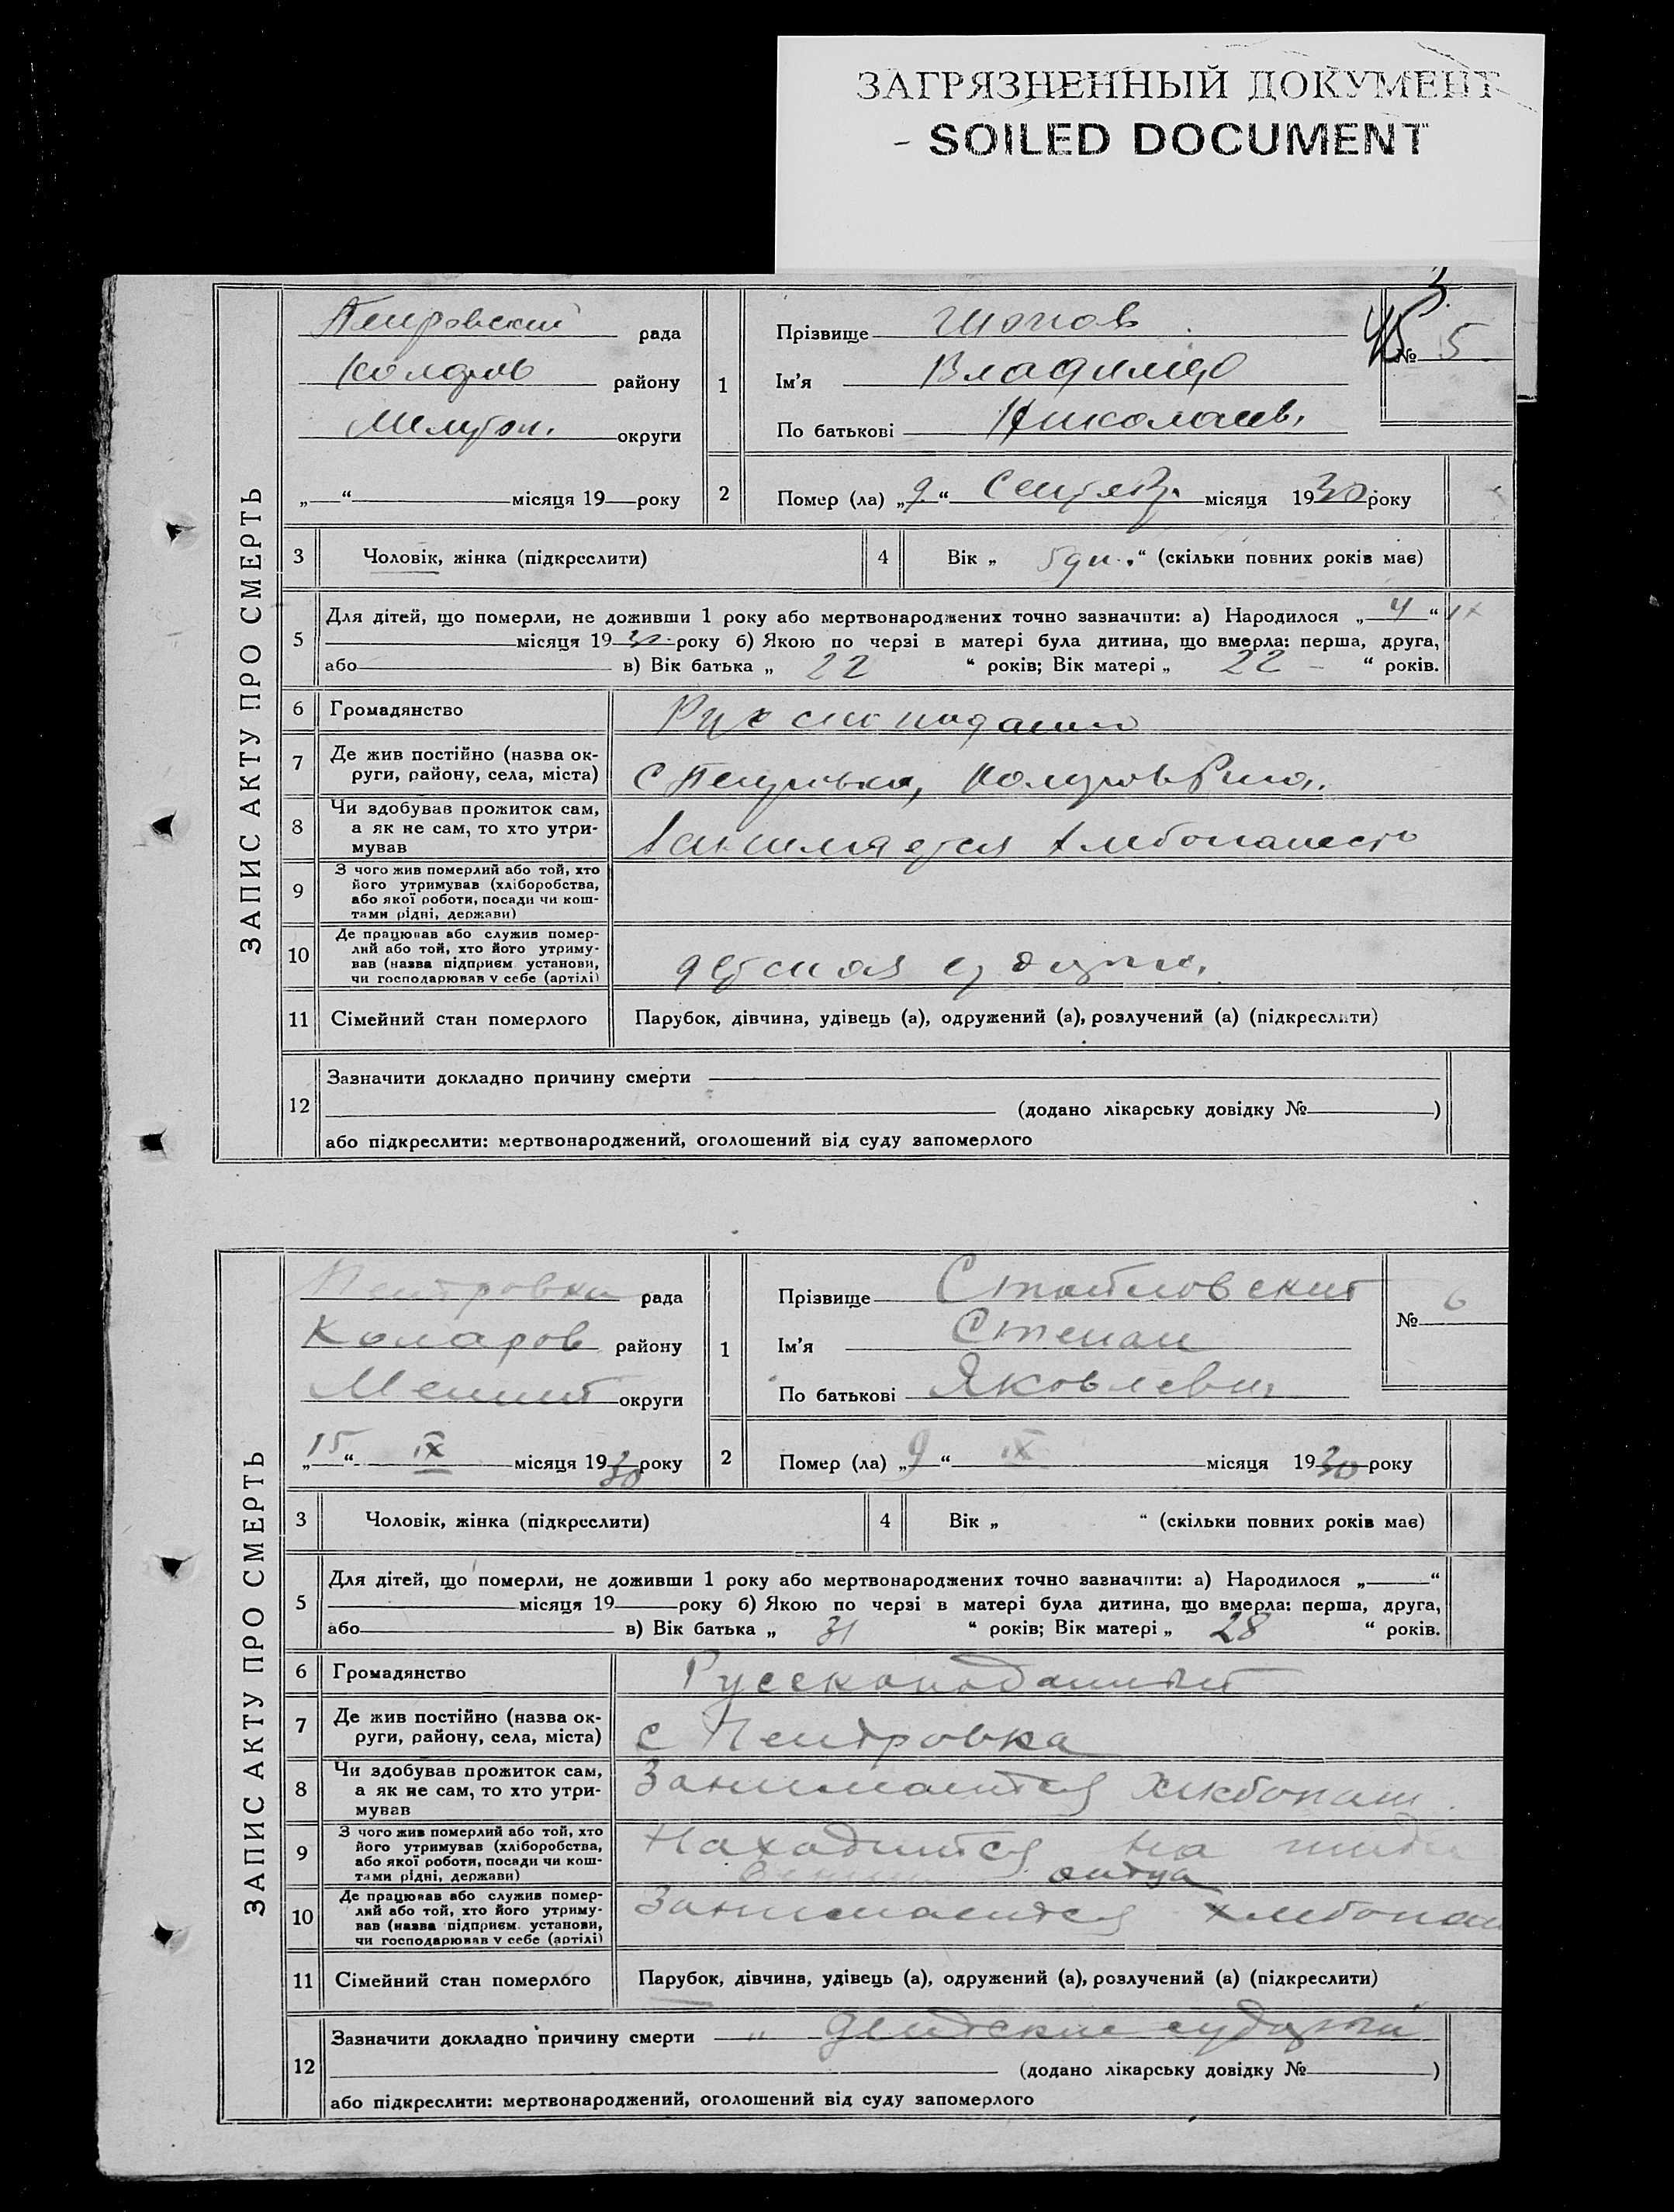 ЗАГРЯЗНЕННЫЙ ДОКУМЕНТ
- SOILED DOCUMENT
ЗАПИС АКТУ ПРО СМЕРТЬ
Петровский рада
Коларов району
Мелитоп. округи
„ “ місяця 19 року
1
Прізвище
Ім'я Владимир
По батькові Николаев.
№ 5
2
Помер (ла) „9“ Сентяб. місяця 1930 року
3
Чоловік, жінка (підкреслити)
4
Вік „ 5 дн. “ (скільки повних років має)
5
Для дітей, що померли, не доживши 1 року або мертвонароджених точно зазначити: а) Народилося „ 4 “ IX
місяця 1930 року б) Якою по черзі в матері була дитина, що вмерла: перша, друга,
або в) Вік батька „ 22 “ років; Вік матері „ 22 “ років.
6
Громадянство
7
Де жив постійно (назва ок-
руги, району, села, міста)
с Петровка, Коларов
8
Чи здобував прожиток сам,
а як не сам, то хто утри-
мував
9
З чого жив померлий або той, хто
його утримував (хліборобства,
або якої роботи, посади чи кош-
тами рідні, держави)
10
Де працював або служив помер-
лий або той, хто його утриму-
вав (назва підприєм. установи,
чи господарював у себе (артілі)
детская
11
Сімейний стан померлого
Парубок, дівчина, удівець (а), одружений (а), розлучений (а) (підкреслити)
12
Зазначити докладно причину смерти
(додано лікарську довідку № )
або підкреслити: мертвонароджений, оголошений від суду запомерлого
ЗАПИС АКТУ ПРО СМЕРТЬ
Петровка рада
Коларов району
округи
„15“ IX місяця 1930 року
1
Прізвище
Ім'я Степан
По батькові Яковлевич
№ 6
2
Помер (ла) „9“ IX місяця 1930 року
3
Чоловік, жінка (підкреслити)
4
Вік „ “ (скільки повних років має)
5
Для дітей, що померли, не доживши 1 року або мертвонароджених точно зазначити: а) Народилося „ “
місяця 19 року б) Якою по черзі в матері була дитина, що вмерла: перша, друга,
або в) Вік батька „ 31 “ років; Вік матері „ 28 “ років.
6
Громадянство
Русскоподанный
7
Де жив постійно (назва ок-
руги, району, села, міста)
с Петровка
8
Чи здобував прожиток сам,
а як не сам, то хто утри-
мував
Занимается хлебопаш
9
З чого жив померлий або той, хто
його утримував (хліборобства,
або якої роботи, посади чи кош-
тами рідні, держави)
Находится на
отца
10
Де працював або служив помер-
лий або той, хто його утриму-
вав (назва підприєм. установи,
чи господарював у себе (артілі)
Занимается хлебопаш
11
Сімейний стан померлого
Парубок, дівчина, удівець (а), одружений (а), розлучений (а) (підкреслити)
12
Зазначити докладно причину смерти
(додано лікарську довідку № )
або підкреслити: мертвонароджений, оголошений від суду запомерлого